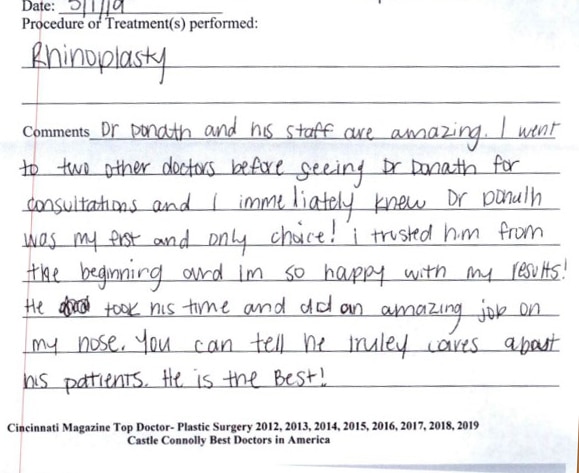 Date: 5/1/19
Procedure or Treatment(s) performed:
Rhinoplasty
Comments Dr Donath and his staff are amazing. I went
to two other doctors before seeing Dr Donath for
consultations and I immediately knew Dr Donath
was my first and only choice! i trusted him from
the beginning and Im so happy with my results!
He took his time and did an amazing job on
my nose. You can tell he truley cares about
his patients. He is the Best!
Cincinnati Magazine Top Doctor- Plastic Surgery 2012, 2013, 2014, 2015, 2016, 2017, 2018, 2019
Castle Connolly Best Doctors in America